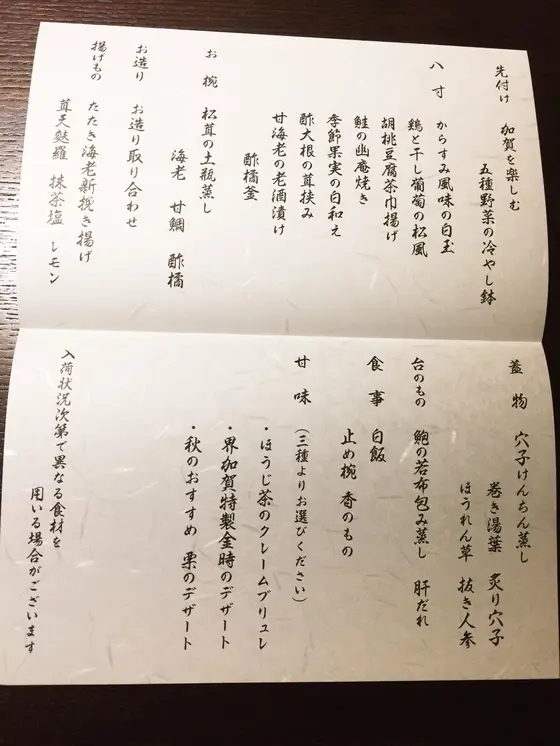 先付け 加賀を楽しむ
五種野菜の冷やし鉢
八寸 からすみ風味の白玉
鶏と干し葡萄の松風
胡桃豆腐茶巾揚げ
鮭の幽庵焼き
季節果実の白和え
酢大根の茸挟み
甘海老の老酒漬け
酢橘釜
お椀 松茸の土瓶蒸し
海老 甘鯛 酢橘
お造り お造り取り合わせ
揚げもの たたき海老新挽き揚げ
茸天麩羅 抹茶塩 レモン
蓋物 穴子けんちん蒸し
巻き湯葉 炙り穴子
ほうれん草 抜き人参
台のもの 鮑の若布包み蒸し 肝だれ
食事 白飯
止め椀 香のもの
甘味 (三種よりお選びください)
・ほうじ茶のクレームブリュレ
・界加賀特製金時のデザート
・秋のおすすめ 栗のデザート
入荷状況次第で異なる食材を
用いる場合がございます